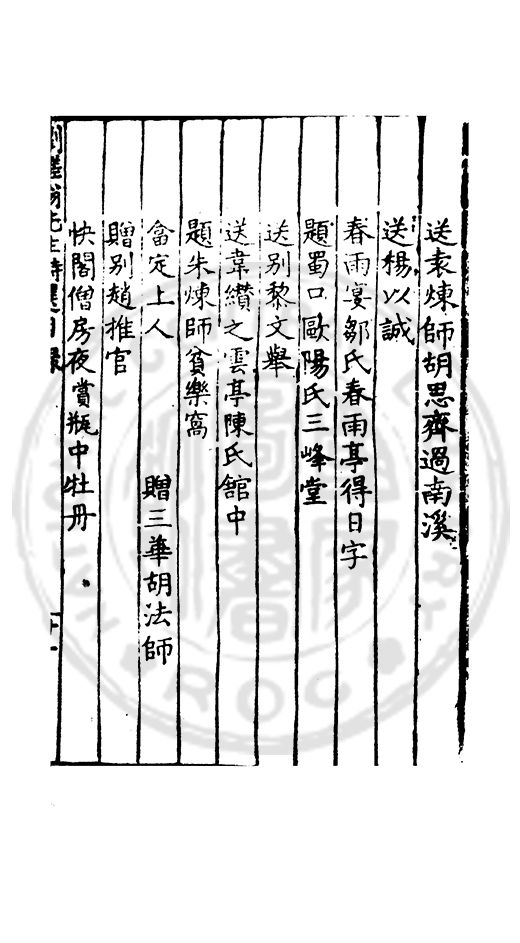 送袁煉師胡思齊過南溪
送楊以誠
春雨宴鄒氏春雨亭得日字
題蜀口歐陽氏三峰堂
送别黎文舉
送韋纘之雲亭陳氏館中
題朱煉師貧樂窩
畣定上人 贈三華胡法師
贈别趙推官
快閣僧房夜賞瓶中牡丹
先生詩選目錄
十一